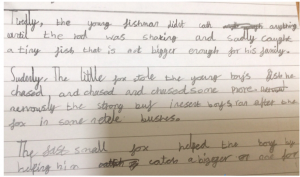 the young fishman didnt cath anything
until the rod was shaking and sadly caught
a tiny fish that is not bigger enough for his family.
Sudenly. The little fox stole the young boys fish he
chased and chased and chased some more
nervously the strong but boys ran after the
fox in some bushes.
The small fox helped the boy by
helping him catch a bigger one for